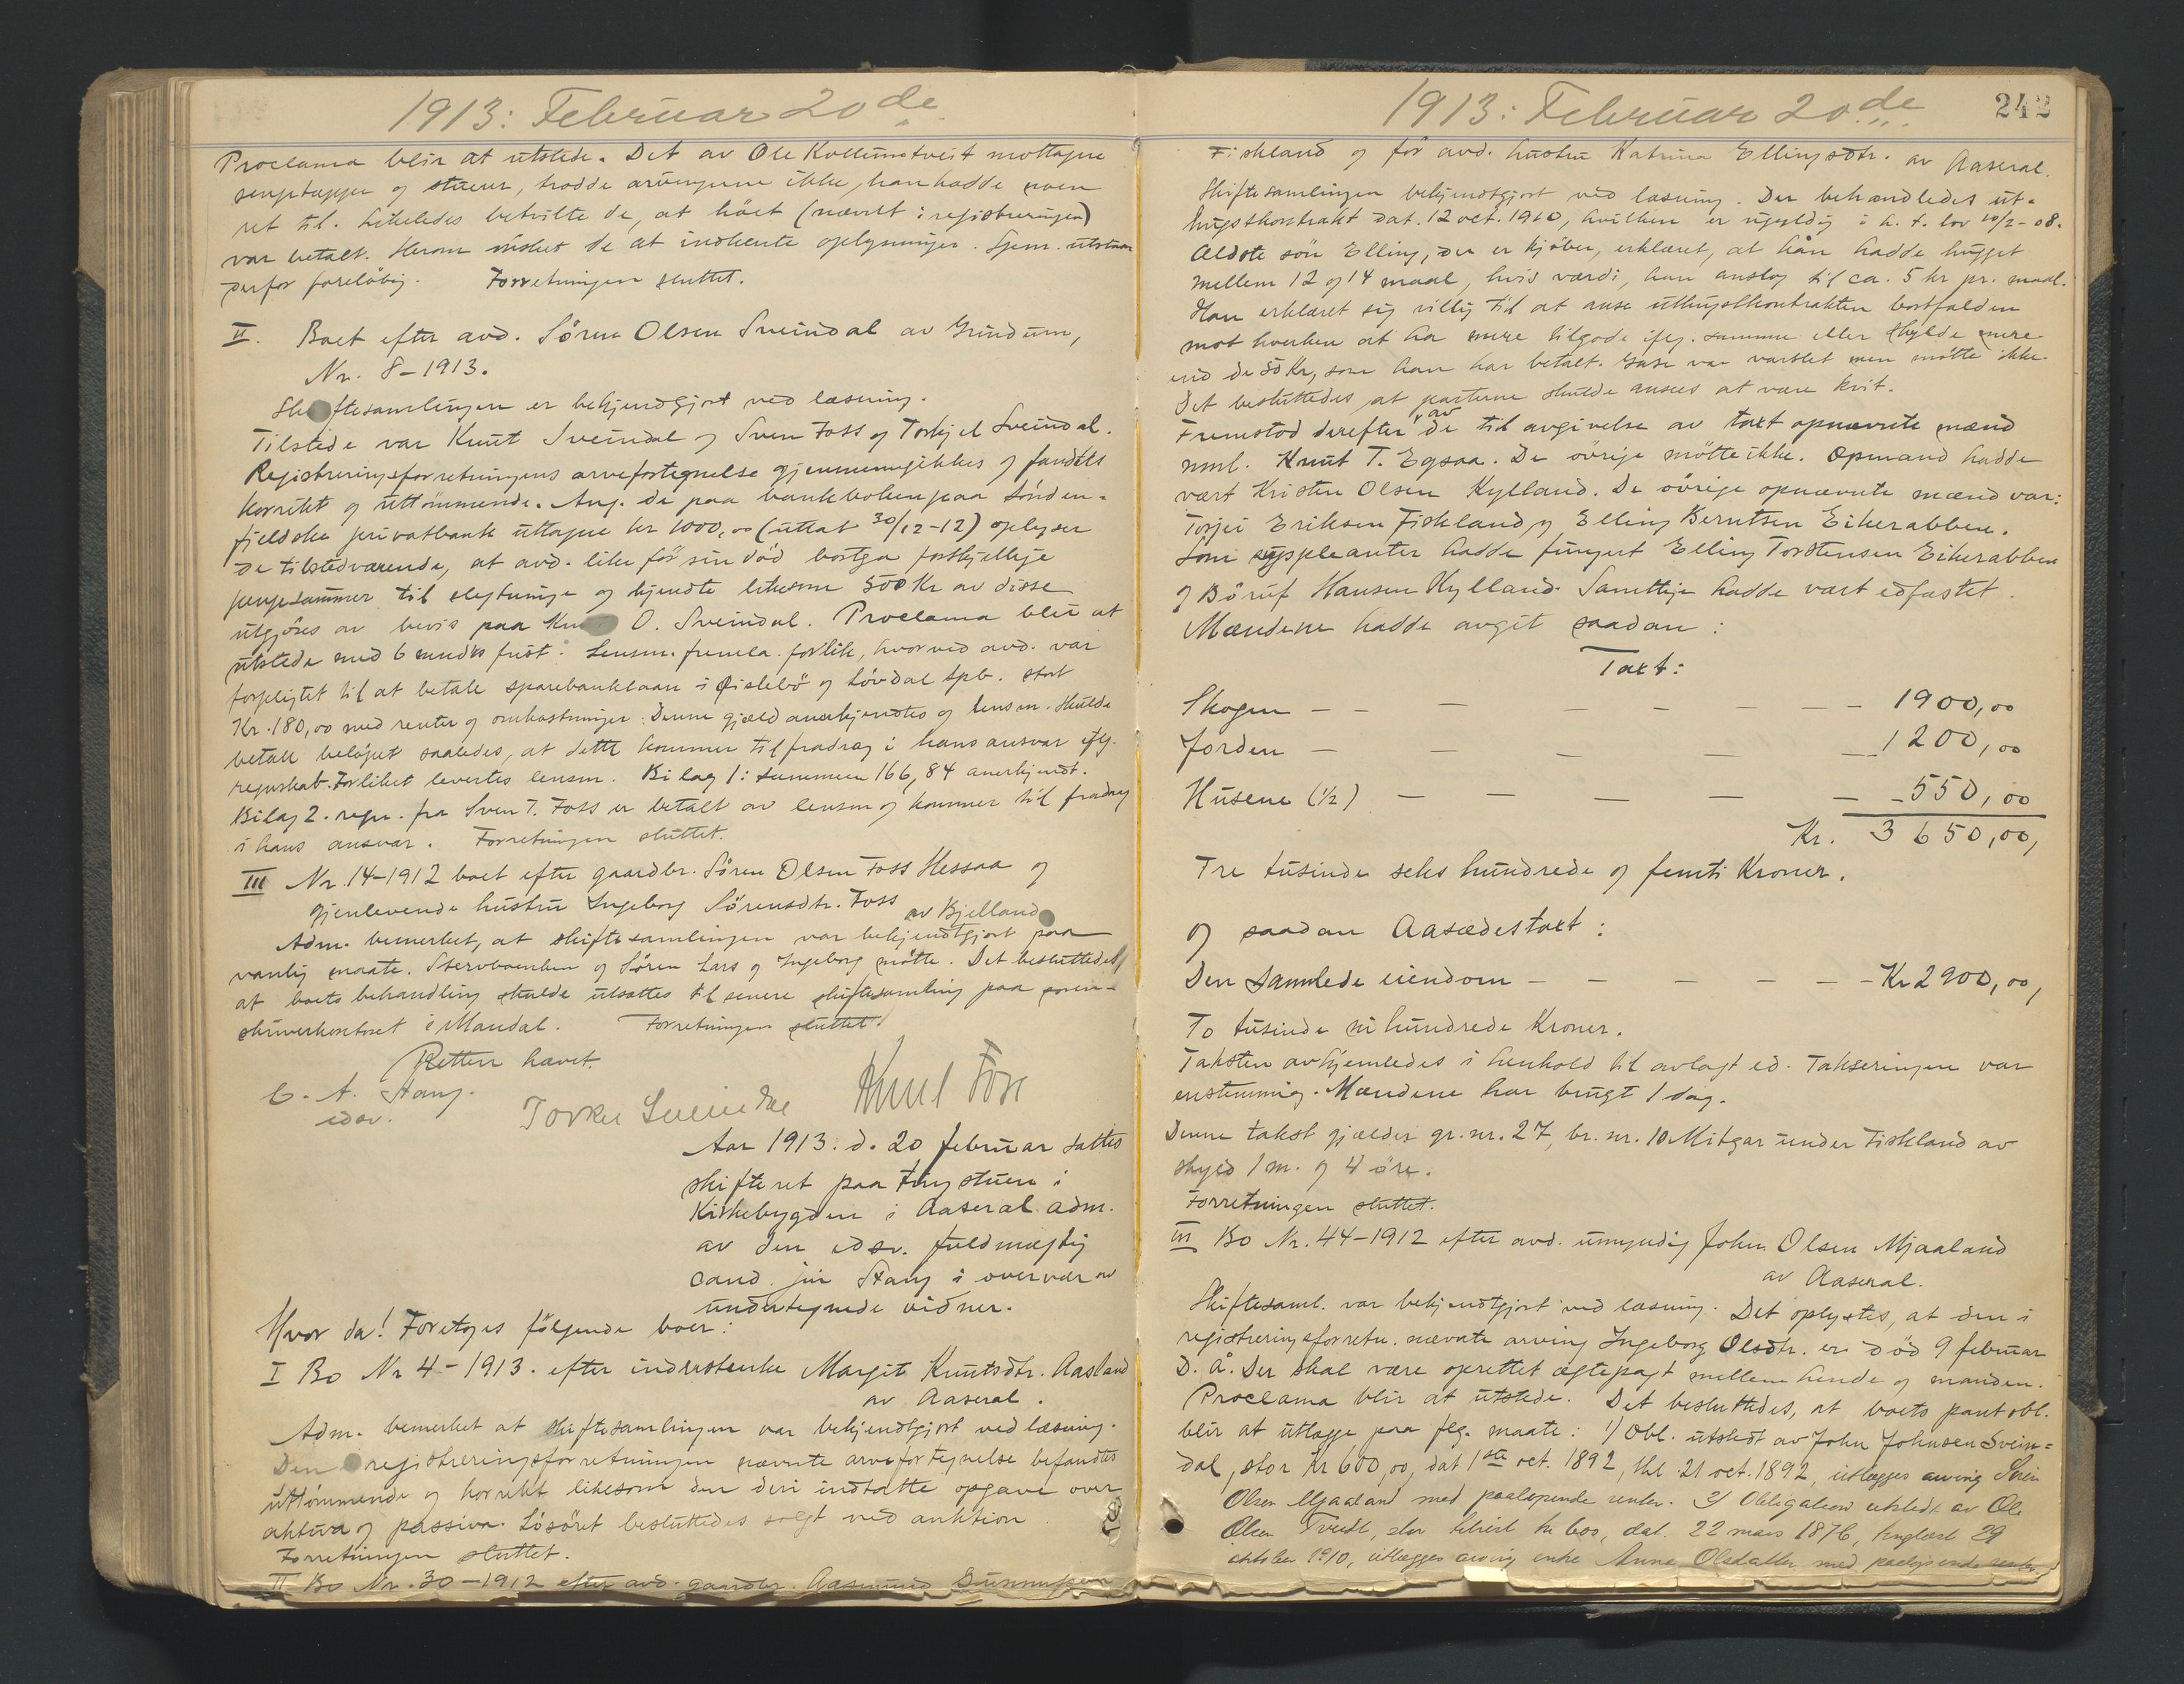 1913: Februar 20de
Proclama blir at utstede. Det av Ole Kollumstveit mottagne
sengetæppe og stueur, trodde arvingerne ikke, han hadde noen
ret til. Likeledes betvilte de, at höiet (nævnt i registreringen)
var betalt. Herom ønsket de at indhente oplysninger. Spm. utstaar
derfor foreløbig. Forretningen sluttet.
II. Boet efter avd. Sören Olsen Sveindal av Grindum,
Nr. 8-1913.
Skiftesamlingen er bekjendtgjort ved læsning.
Tilstede var Knut Sveindal og Sven Foss og Torkjel Sveindal.
Registreringsforretningens arvefortegnelse gjennemgikkes og fandtes
korrekt og uttömmende. Ang. de paa bankboken paa Sönden-
fjeldske privatbank uttagne kr 1000,00 (uttat 30/12-12) oplyser
de tilstedværende, at avd. like för sin död bortga forskjellige
pengesummer til slegtninge og kjendte likesom 500 Kr av disse
utgjöres av bevis paa Knut O. Sveindal. Proclama blir at
utstede med 6 mndrs frist. Lensm. fremla forlik, hvorved avd. var
forpligtet til at betale sparebanklaan i Öislebö og Lövdal Spb. stort
Kr. 180,00 med renter og omkostninger. Denne gjæld anerkjendtes og lensm. skulde
betale belöpet saaledes, at dette kommer til fradrag i hans ansvar iflg.
regnskab. Forliket levertes lensm. Bilag 1: Summen 166,84 anerkjendt.
Bilag 2. regn. fra Sven T. Foss er betalt av lensm og kommer til fradrag
i hans ansvar. Forretningen sluttet.
III Nr. 14-1912 boet efter gaardbr. Sören Olsen Foss Hessaa og
gjenlevende hustru Ingeborg Sörensdtr. Foss av Bjelland
Adm. bemerket, at skiftesamlingen var bekjendtgjort paa
vanlig maate. Stervboenken og Sören Lars og Ingeborg mötte. Det besluttedes
at boets behandling skulde utsættes til senere skiftesamling paa soren-
skriverkontoret i Mandal. Forretningen sluttet.
Retten hævet.
C. A. Stang.
edsv.
Torkel Sveindal Knut Foss
Aar 1913. d. 20 februar sattes
skifteret paa Tingstuen i
Kirkebygden i Aaseral adm.
av den edsv. fuldmægtig
cand. jur Stang i overvær av
undertegnede vidner.
Hvor da! Foretoges fölgende boer:
I Bo Nr 4-1913. efter inderstenke Margit Knutsdtr. Aasland
av Aaseral.
Adm. bemerket at skiftesamlingen var bekjendtgjort ved læsning.
Den i registreringsforretningen nævnte arvefortegnelse befandtes
uttömmende og korrekt likesom den deri indtatte opgave over
aktiva og passiva. Lösöret besluttedes solgt ved auktion.
Forretningen sluttet.
II Bo Nr. 30-1912 efter avd. gaardbr. Aasmund Gunnufsen
1913: Februar 20de
242
Fiskland og for avd. hustru Katrina Ellingsdtr. av Aaseral.
Skiftesamlingen bekjendtgjort ved læsning. Der behandledes ut-
hugstkontrakt dat. 12 oct. 1910, hvilken er ugyldig i h. t. lov 20/2-08.
Ældste sön Elling, der er kjöber, erklæret, at han hadde hugget
mellem 12 og 14 maal, hvis værdi, han anslog til ca. 5 kr pr. maal.
Han erklæret sig villig til at anse uthugstkontrakten bortfalden
mot hverken at ha mere tilgode iflg. samme eller skylde mere
end de 50 Kr, som han har betalt. Gase var varslet men mötte ikke.
Det besluttedes at parterne skulde ansees at være kvit.
Fremstod derefter av de til avgivelse av taxt opnævnte mænd
nml. Knut T. Egsaa. De övrige mötte ikke. Opmand hadde
vært Kristen Olsen Kylland. De övrige opnævnte mænd var:
Torjei Eriksen Fiskland og Elling Berntsen Eikerabben.
Som suppleanter hadde fungert Elling Torstensen Eikerabben
og Böruf Hansen Kylland. Samtlige hadde vært edfæstet.
Mændene hadde avgit saadan:
Taxt:
Skogen - - - - - - - 1900,00
Jorden - - - - - 1200,00
Husene (1/2) - - - - - - 550,00
Kr. 3650,00,
Tre tusinde seks hundrede og femti Kroner.
og saadan Aasædestaxt:
Den samlede eiendom - - - - - - Kr 2900,00,
To tusinde ni hundrede Kroner.
Taksten avhjemledes i henhold til avlagt ed. Takseringen var
enstemmig. Mændene har brugt 1 dag.
Denne takst gjælder gr. nr. 27, br. nr. 10 Mitgar under Fiskland av
skyld 1 m. og 4 öre.
Forretningen sluttet.
III Bo Nr. 44-1912 efter avd. umyndig John Olsen Mjaaland
av Aaseral.
Skiftesaml. var bekjendtgjort ved læsning. Det oplystes, at den i
registreringsforretn. nævnte arving Ingeborg Olsdtr. er död 9 februar
D. Å. Der skal være oprettet ægtepagt mellem hende og manden.
Proclama blir at utstede. Det besluttedes, at boets pantobl.
blir at utlægge paa flg. maate: 1) Obl. utstedt av John Johnsen Svein-
dal, stor kr 600,00, dat 1ste oct. 1892, thl. 21 oct. 1892, utlægges arving Sören
Olsen Mjaaland med paalöpende renter. 2) Obligation utstedt av Ole
Olsen Tveidt, stor kr 600, dat. 22 mars 1876, tinglæst 29
oktober 1910, utlægges arving enke Anne Olsdatter med paalöpende renter.